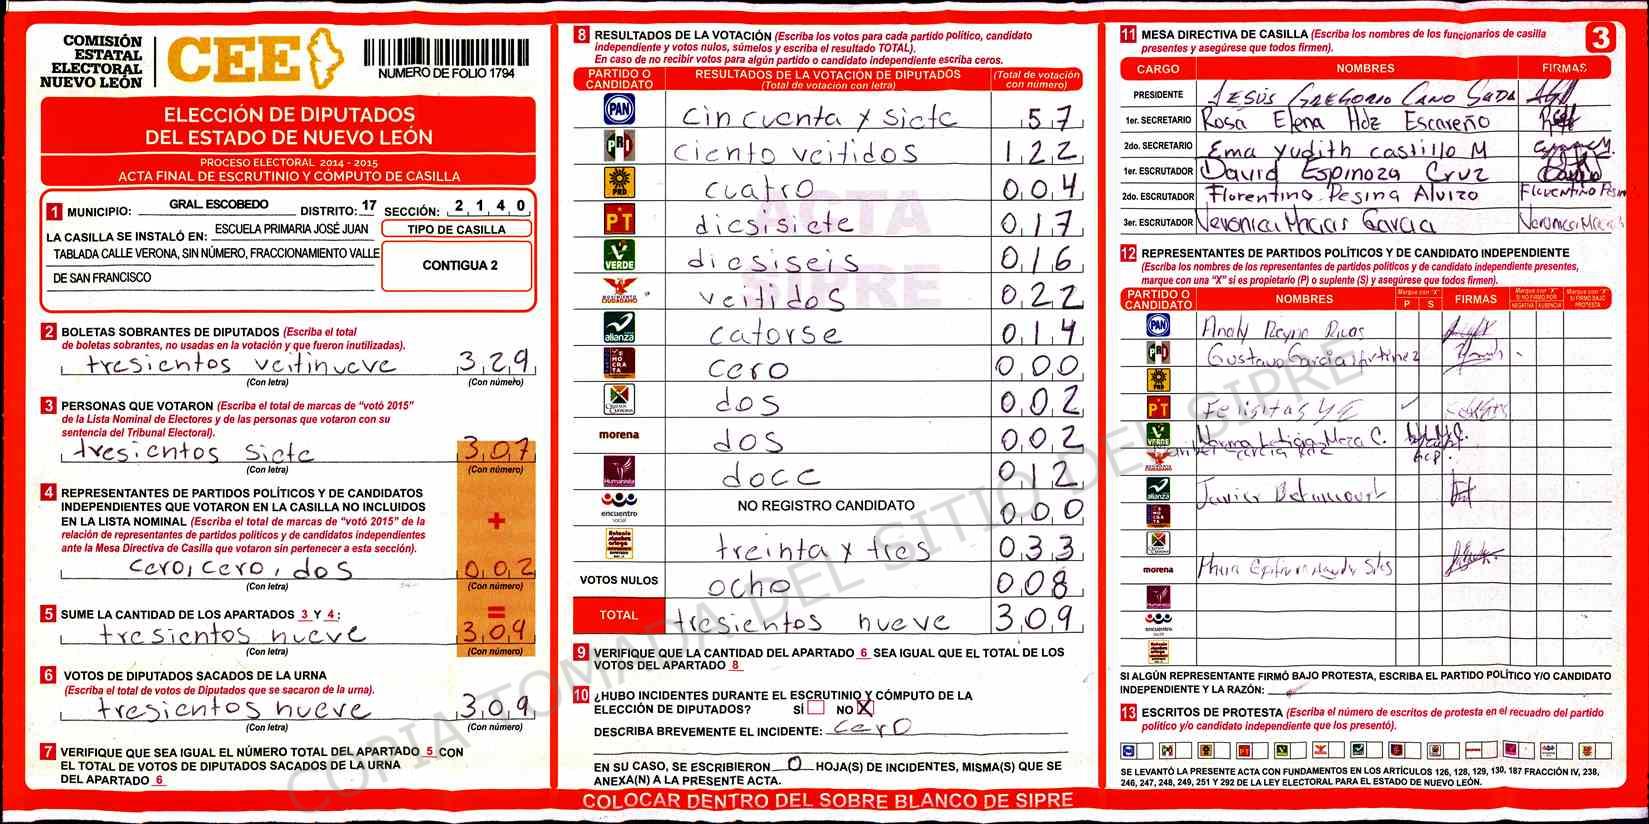 COMISIÓN
ESTATAL
ELECTORAL
NUEVO LEÓN
CEE
NUMERO DE FOLIO 1794
ELECCIÓN DE DIPUTADOS
DEL ESTADO DE NUEVO LEÓN
PROCESO ELECTORAL 2014 - 2015
ACTA FINAL DE ESCRUTINIO Y CÓMPUTO DE CASILLA
1 MUNICIPIO: GRAL. ESCOBEDO DISTRITO: 17 SECCIÓN: 2 1 4 0
LA CASILLA SE INSTALÓ EN: ESCUELA PRIMARIA JOSÉ JUAN
TABLADA CALLE VERONA, SIN NÚMERO, FRACCIONAMIENTO VALLE
DE SAN FRANCISCO
TIPO DE CASILLA
CONTIGUA 2
2 BOLETAS SOBRANTES DE DIPUTADOS (Escriba el total
de boletas sobrantes, no usadas en la votación y que fueron inutilizadas).
tresientos veitinueve 3,2,9
(Con letra) (Con número)
3 PERSONAS QUE VOTARON (Escriba el total de marcas de “votó 2015”
de la Lista Nominal de Electores y de las personas que votaron con su
sentencia del Tribunal Electoral).
tresientos siete 3,0,7
(Con letra) (Con número)
4 REPRESENTANTES DE PARTIDOS POLÍTICOS Y DE CANDIDATOS
INDEPENDIENTES QUE VOTARON EN LA CASILLA NO INCLUIDOS
EN LA LISTA NOMINAL (Escriba el total de marcas de “votó 2015” de la
relación de representantes de partidos políticos y de candidatos independientes
ante la Mesa Directiva de Casilla que votaron sin pertenecer a esta sección).
+
cero, cero, dos 0,0,2
(Con letra) (Con número)
=
5 SUME LA CANTIDAD DE LOS APARTADOS 3 Y 4:
tresientos nueve 3,0,9
(Con letra) (Con número)
6 VOTOS DE DIPUTADOS SACADOS DE LA URNA
(Escriba el total de votos de Diputados que se sacaron de la urna).
tresientos nueve 3,0,9
(Con letra) (Con número)
7 VERIFIQUE QUE SEA IGUAL EL NÚMERO TOTAL DEL APARTADO 5 CON
EL TOTAL DE VOTOS DE DIPUTADOS SACADOS DE LA URNA
DEL APARTADO 6
8 RESULTADOS DE LA VOTACIÓN (Escriba los votos para cada partido político, candidato
independiente y votos nulos, súmelos y escriba el resultado TOTAL).
En caso de no recibir votos para algún partido o candidato independiente escriba ceros.
PARTIDO O CANDIDATO RESULTADOS DE LA VOTACIÓN DE DIPUTADOS (Total de votación con letra) (Total de votación con número)
PAN cincuenta y siete 5,7
PRI ciento veitidos 1,2,2
PRD cuatro 0,0,4
PT diesisiete 0,1,7
VERDE diesiseis 0,1,6
MOVIMIENTO CIUDADANO veitidos 0,2,2
alianza catorse 0,1,4
DEMOCRATA cero 0,0,0
dos 0,0,2
morena dos 0,0,2
Humanista doce 0,1,2
encuentro social NO REGISTRO CANDIDATO 0,0,0
treinta y tres 0,3,3
VOTOS NULOS ocho 0,0,8
TOTAL tresientos nueve 3,0,9
ACTA
SIPRE
9 VERIFIQUE QUE LA CANTIDAD DEL APARTADO 6 SEA IGUAL QUE EL TOTAL DE LOS
VOTOS DEL APARTADO 8
10 ¿HUBO INCIDENTES DURANTE EL ESCRUTINIO Y CÓMPUTO DE LA
ELECCIÓN DE DIPUTADOS? SÍ NO X
DESCRIBA BREVEMENTE EL INCIDENTE: cero
EN SU CASO, SE ESCRIBIERON 0 HOJA(S) DE INCIDENTES, MISMA(S) QUE SE
ANEXA(N) A LA PRESENTE ACTA.
COLOCAR DENTRO DEL SOBRE BLANCO DE SIPRE
COPIA TOMADA DEL SITIO DEL SIPRE
11 MESA DIRECTIVA DE CASILLA (Escriba los nombres de los funcionarios de casilla
presentes y asegúrese que todos firmen).
3
CARGO NOMBRES FIRMAS
PRESIDENTE JESÚS GREGORIO CANO
1er. SECRETARIO Rosa Elena Hdz Escareño
2do. SECRETARIO Ema Yudith castillo M
1er. ESCRUTADOR David Espinoza Cruz
2do. ESCRUTADOR Florentino Pesina Alvizo Florentino
3er. ESCRUTADOR Veronica Macias Garcia Veronica
12 REPRESENTANTES DE PARTIDOS POLÍTICOS Y DE CANDIDATO INDEPENDIENTE
(Escriba los nombres de los representantes de partidos políticos y de candidato independiente presentes,
marque con una “X” si es propietario (P) o suplente (S) y asegúrese que todos firmen).
PARTIDO O CANDIDATO NOMBRES Marque con “X” P S FIRMAS Marque con “X” SI NO FIRMÓ POR NEGATIVA AUSENCIA Marque con “X” SI FIRMÓ BAJO PROTESTA
PAN
PRI Gustavo Garcia
PRD
PT Felisitas
VERDE Norma Leticia Meza C.
alianza Javier Betancourt
morena
encuentro social
SI ALGÚN REPRESENTANTE FIRMÓ BAJO PROTESTA, ESCRIBA EL PARTIDO POLÍTICO Y/O CANDIDATO
INDEPENDIENTE Y LA RAZÓN:
13 ESCRITOS DE PROTESTA (Escriba el número de escritos de protesta en el recuadro del partido
político y/o candidato independiente que los presentó).
SE LEVANTÓ LA PRESENTE ACTA CON FUNDAMENTOS EN LOS ARTÍCULOS 126, 128, 129, 130, 187 FRACCIÓN IV, 238,
246, 247, 248, 249, 251 Y 292 DE LA LEY ELECTORAL PARA EL ESTADO DE NUEVO LEÓN.